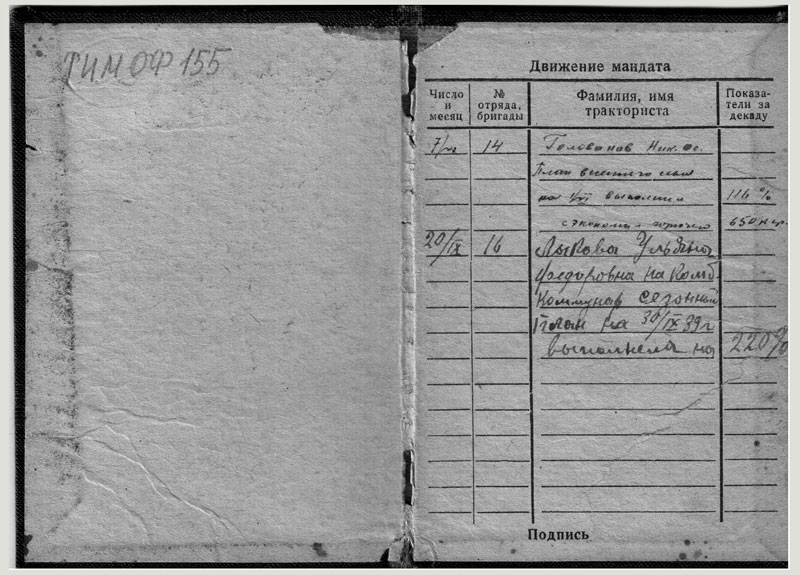 ТИМОФ 155
Движение мандата
Число и месяц
№ отряда, бригады
Фамилия, имя тракториста
Показа-
тели за
декаду
14 Голованов Ник.
План весеннего сева
на выполнил 116%
650 кгр.
20/IX 16 Лыкова Ульяна
Федоровна на Комб.
Коммунар сезонный
План на 30/IX 39 г
выполнела на 220%
Подпись